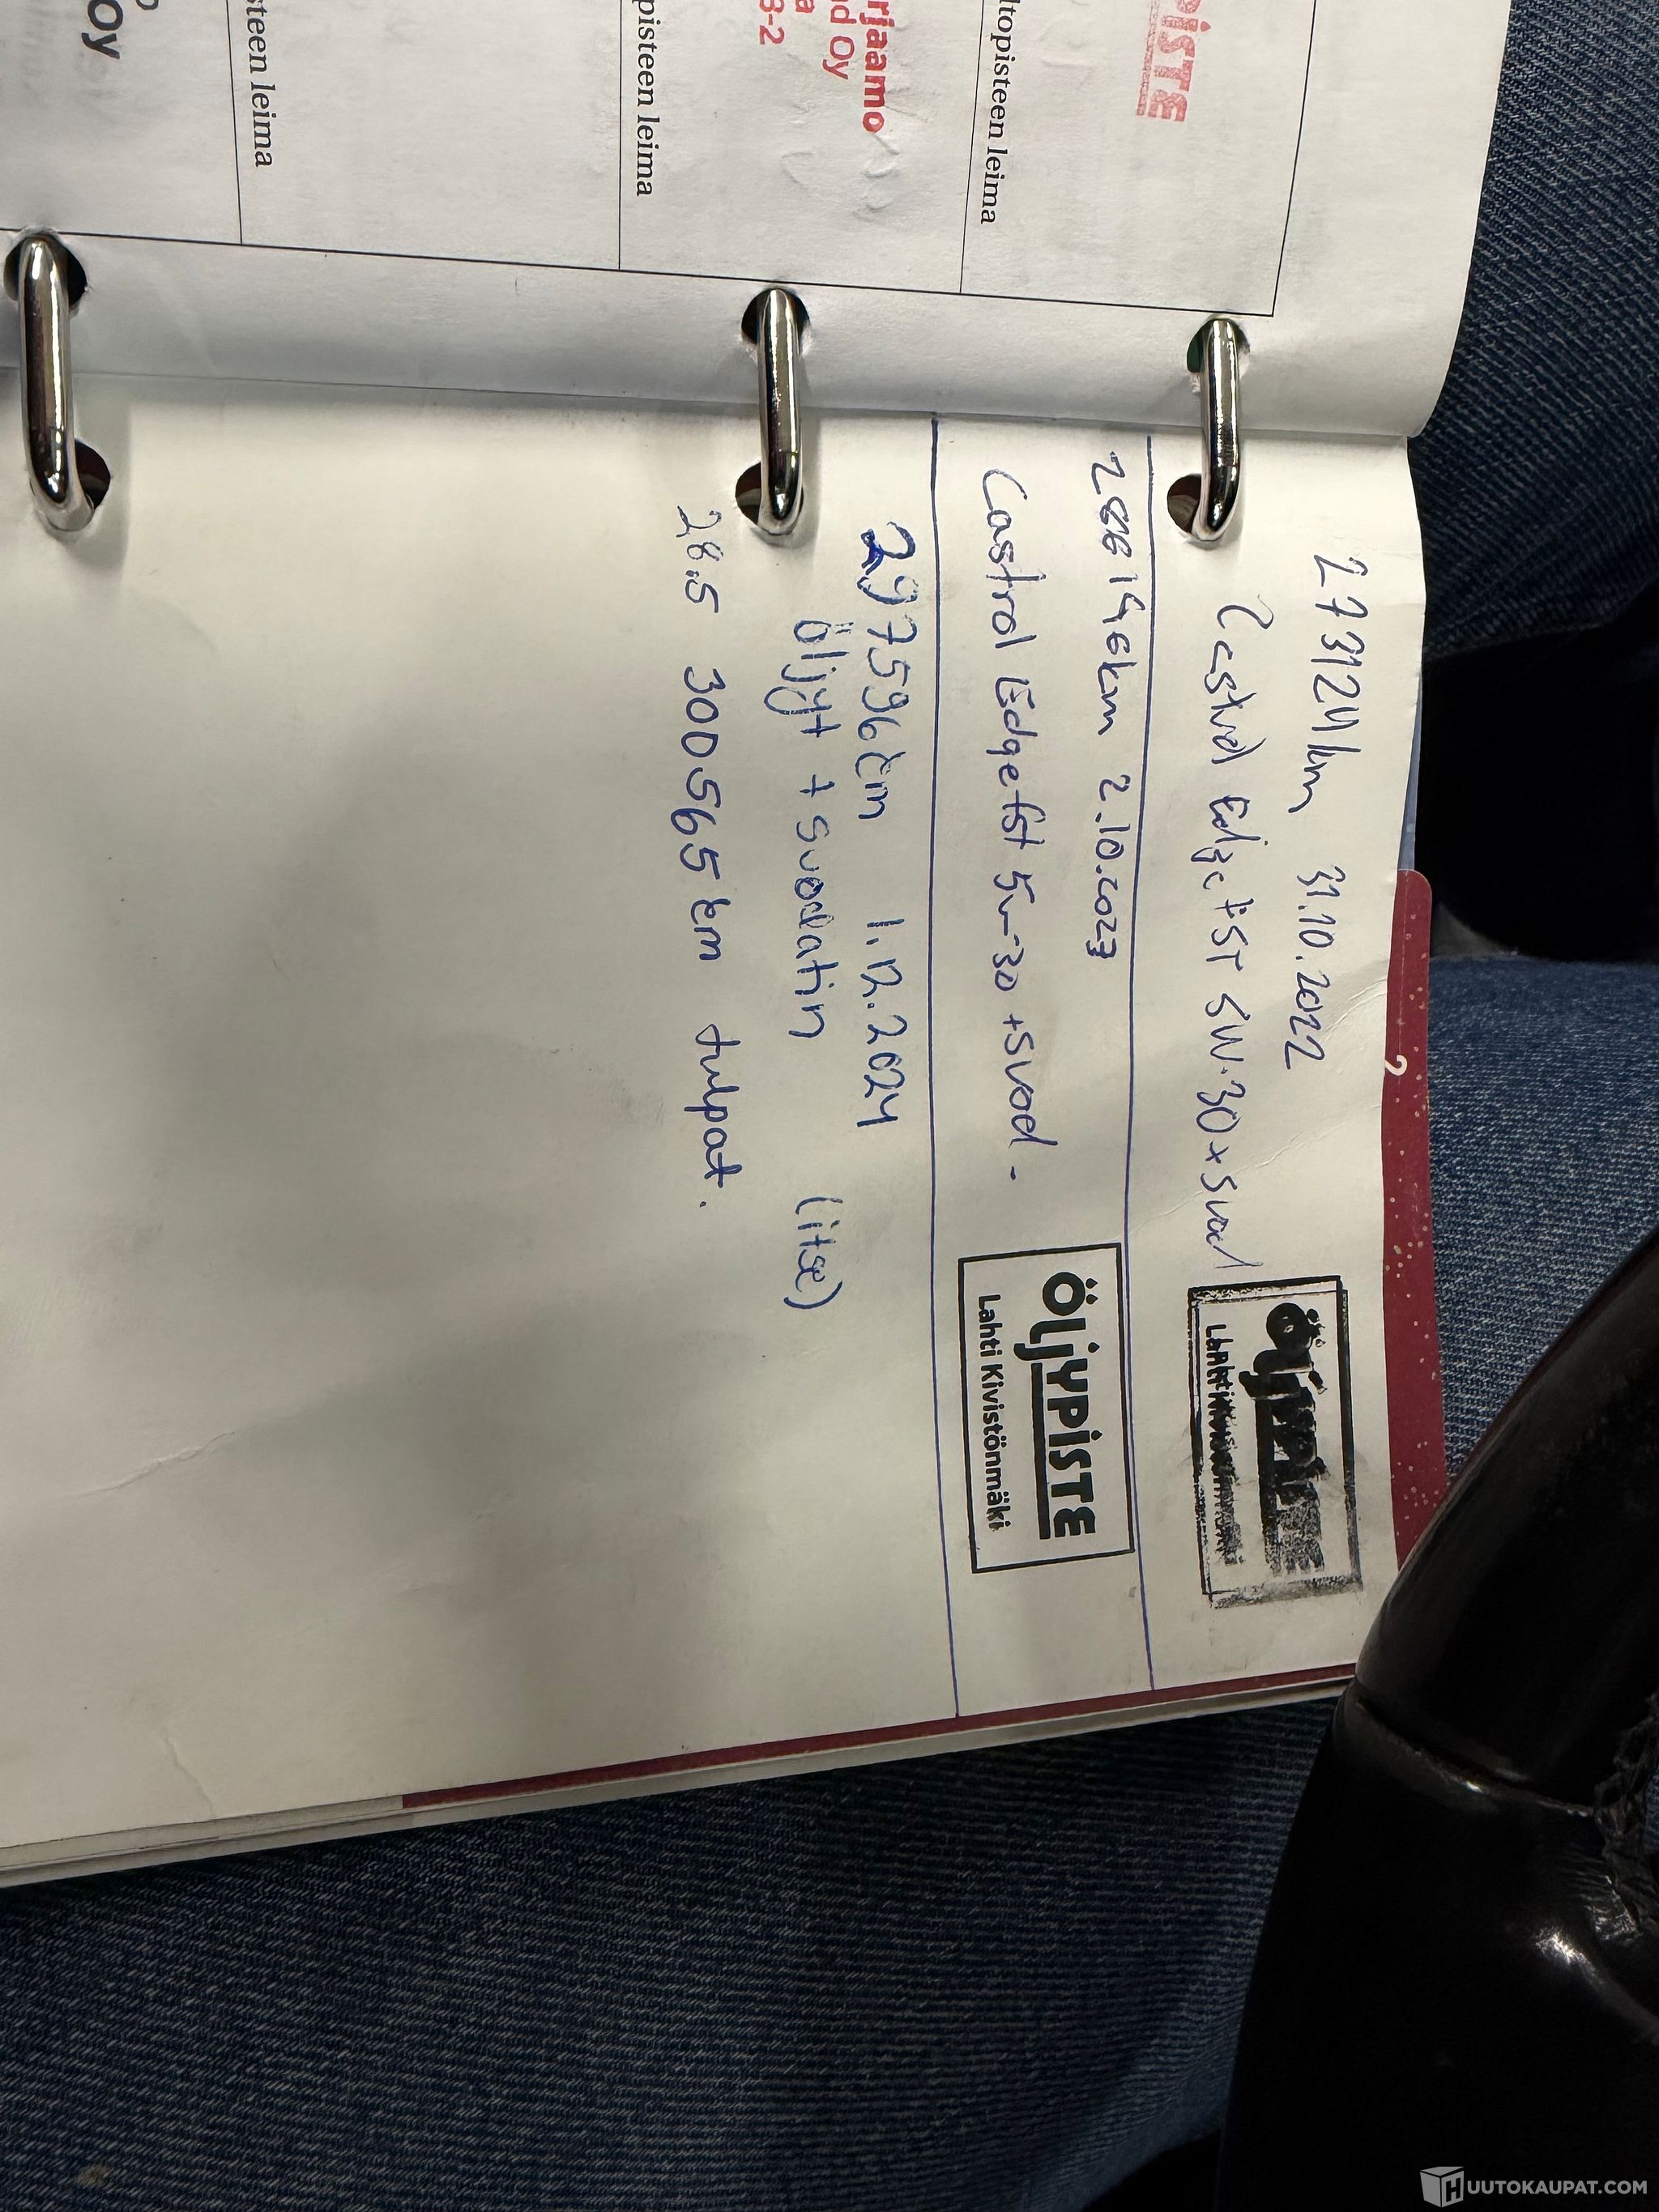 PISTE
ltopisteen leima
rjaamo
d Oy
a
3-2
pisteen leima
steen leima
OY
2
273124km 31.10.2022
Castrol Edge FST 5W-30 + suod
ÖLJYPISTE
2.10.2023
Castrol Edge fst 5w-30 + suod -
ÖLJYPISTE
Lahti Kivistönmäki
297596km 1.12.2024
Öljyt + suodatin (itse)
28.5 300565km tulpat.
HUUTOKAUPAT.COM